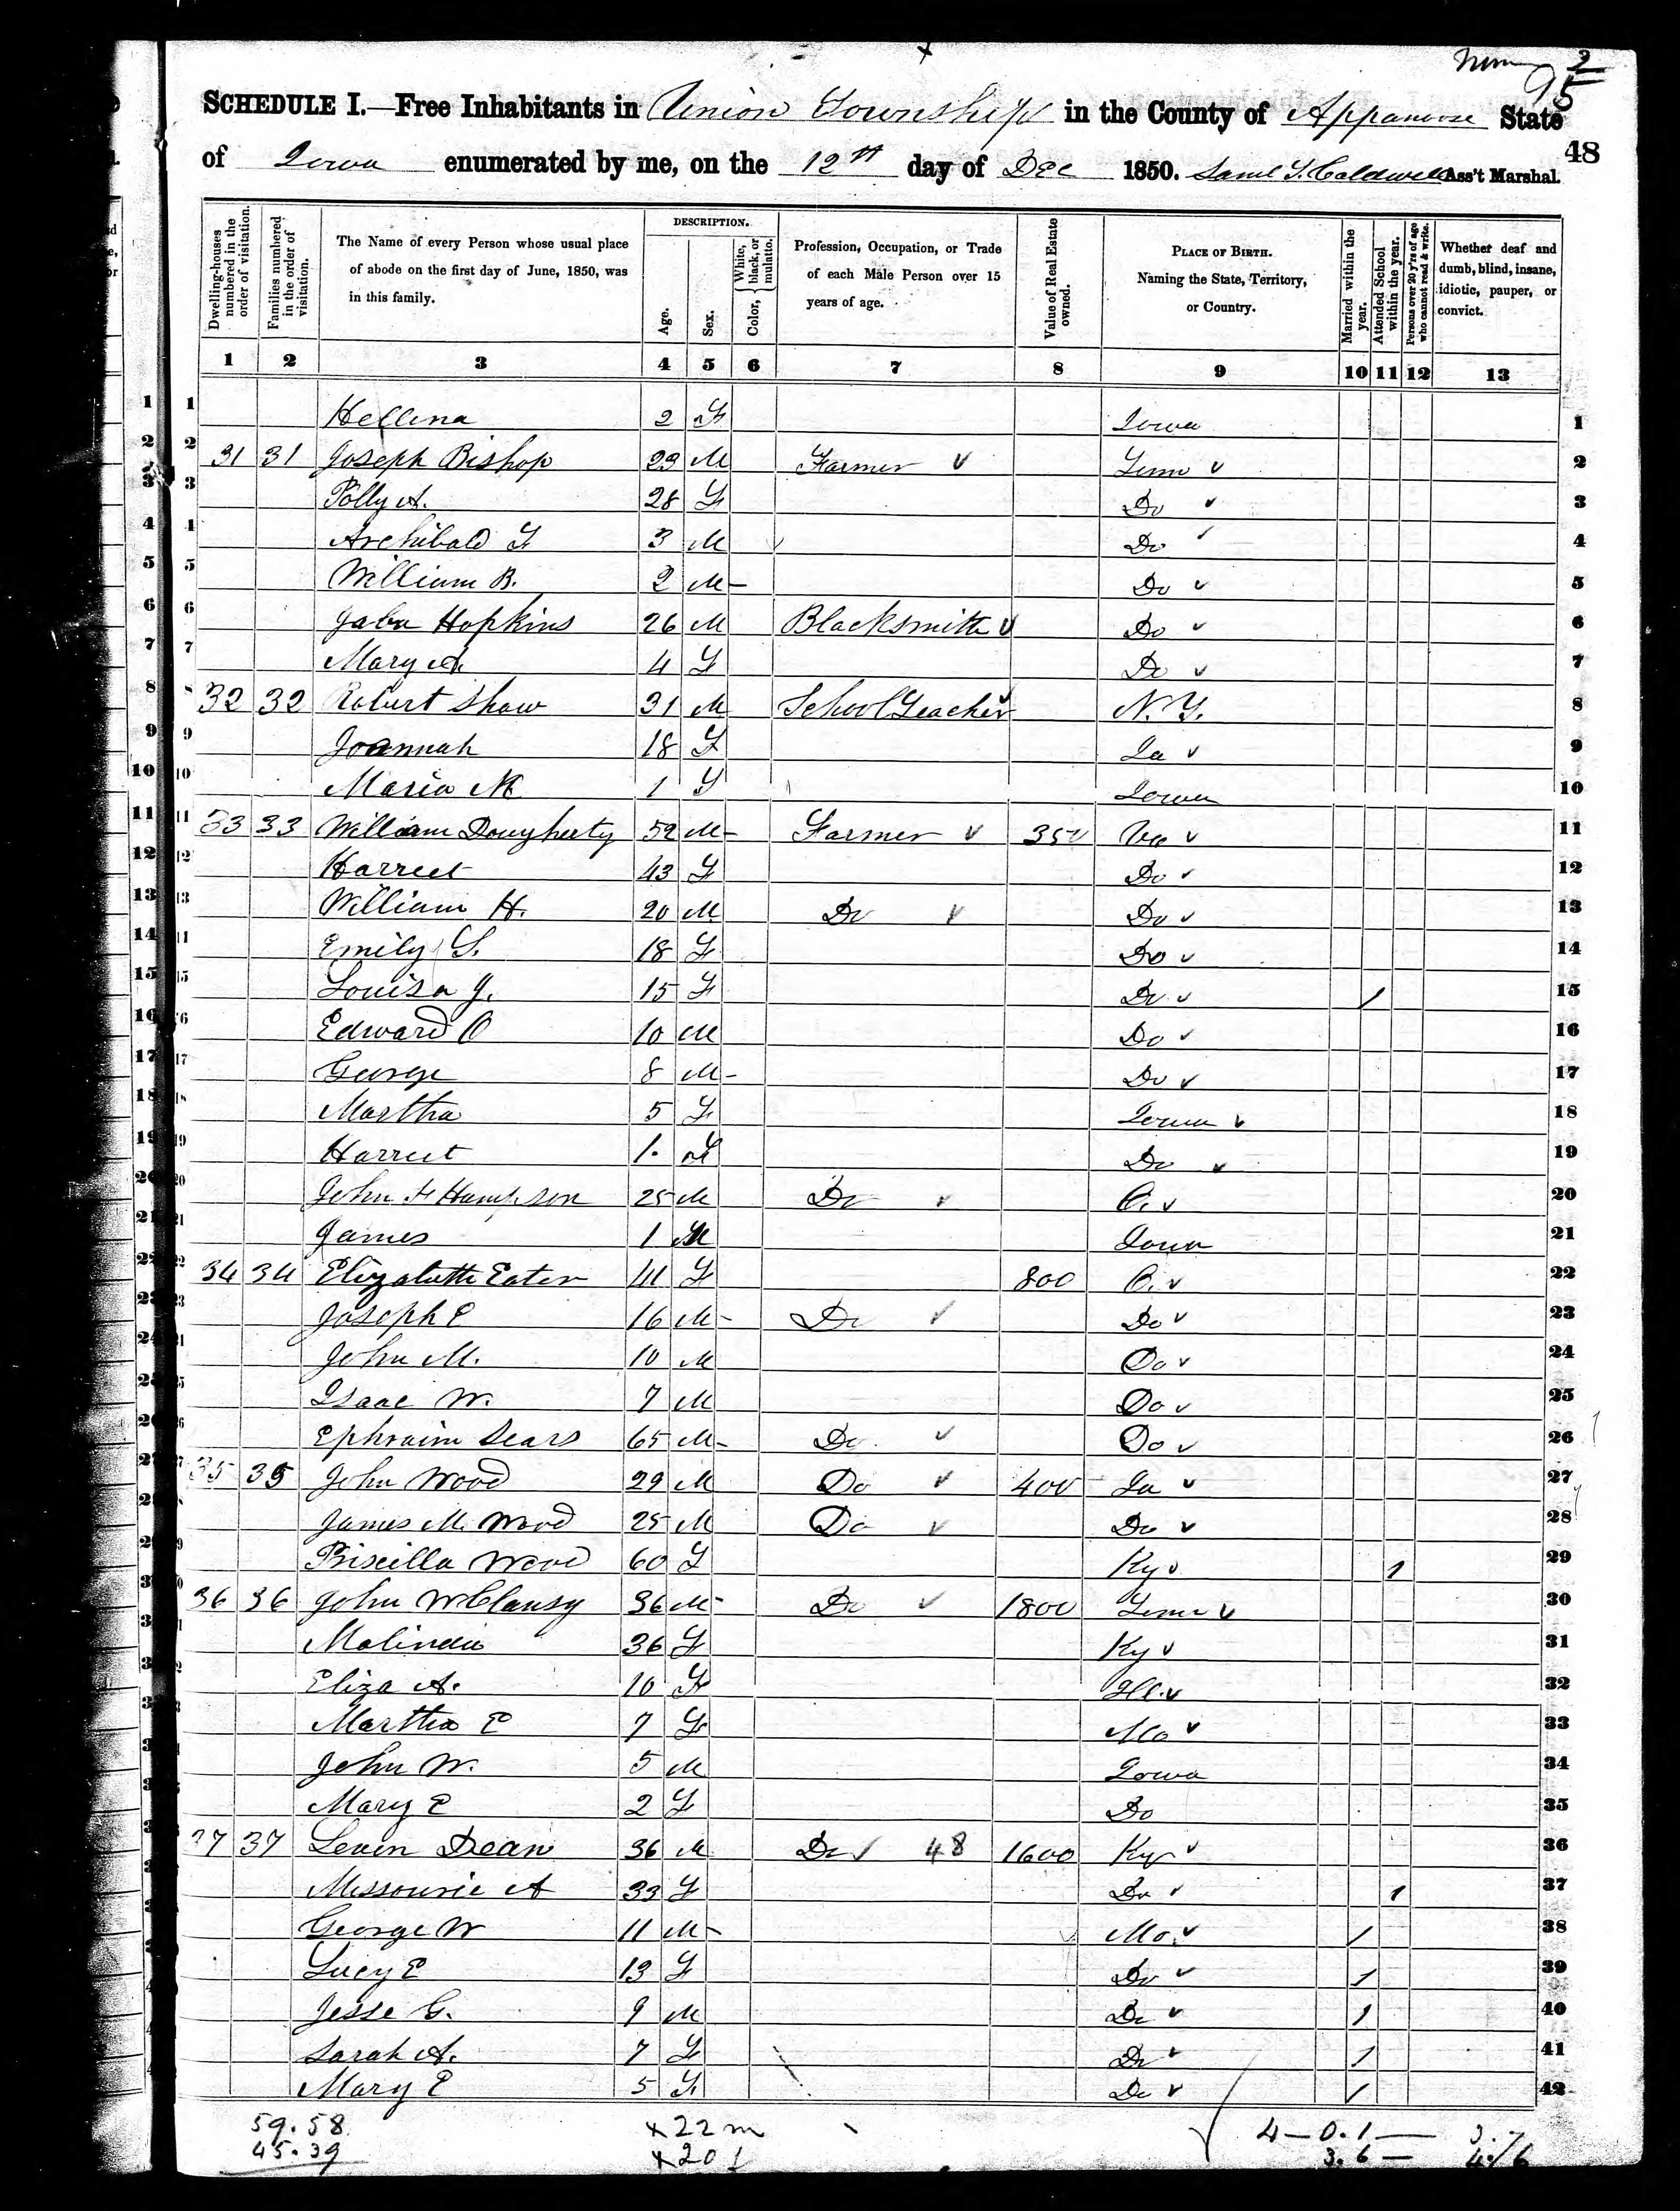 2
95
SCHEDULE I.—Free Inhabitants in Union Township in the County of Appanoose State
48
of Iowa enumerated by me, on the 12th day of Dec 1850. Saml T. Caldwell Ass't Marshal.
Dwelling-houses numbered in the order of visitation.
Families numbered in the order of visitation.
The Name of every Person whose usual place of abode on the first day of June, 1850, was in this family.
DESCRIPTION.
Age.
Sex.
Color, White, black, or mulatto.
Profession, Occupation, or Trade of each Male Person over 15 years of age.
Value of Real Estate owned.
PLACE OF BIRTH. Naming the State, Territory, or Country.
Married within the year.
Attended School within the year.
Persons over 20 y'rs of age who cannot read & write.
Whether deaf and dumb, blind, insane, idiotic, pauper, or convict.
1 2 3 4 5 6 7 8 9 10 11 12 13
1 Hellena 2 F Iowa 1
2 31 31 Joseph Bishop 29 M Farmer Tenn 2
3 Polly A. 28 F Do 3
4 Archibald F 3 M Do 4
5 William B. 2 M Do 5
6 Hopkins 26 M Blacksmith Do 6
7 Mary A. 4 F Do 7
8 32 32 Robert Shaw 31 M School Teacher N.Y. 8
9 Joannah 18 F Ia 9
10 Maria 1 F Iowa 10
11 33 33 William Dougherty 52 M Farmer 350 Va 11
12 Harriet 43 F Do 12
13 William H. 20 M Do Do 13
14 Emily S. 18 F Do 14
15 Louisa J. 15 F Do 1 15
16 Edward O 10 M Do 16
17 George 8 M Do 17
18 Martha 5 F Iowa 18
19 Harriet 1 F Do 19
20 John F Hampson 25 M Do O. 20
21 James 1 M Iowa 21
22 34 34 Elizabeth Eaten 41 F 800 O. 22
23 Joseph E 16 M Do Do 23
24 John M. 10 M Do 24
25 Isaac W. 7 M Do 25
26 Ephraim Sears 65 M Do Do 26
27 35 35 John Wood 29 M Do 400 Ia 27
28 James M. Wood 25 M Do Do 28
29 Priscilla Wood 60 F Ky 1 29
30 36 36 John W Clansy 36 M Do 1800 Tenn 30
31 Malinda 36 F Ky 31
32 Eliza A. 10 F Ill. 32
33 Martha E 7 F Mo 33
34 John W. 5 M Iowa 34
35 Mary E 2 F Do 35
36 37 37 Leven Dean 36 M Do 48 1600 Ky 36
37 Missourie A 33 F Do 1 37
38 George W 11 M Mo. 1 38
39 Lucy E 13 F Do 1 39
40 Jesse G. 9 M Do 1 40
41 Sarah A. 7 F Do 1 41
42 Mary E 5 F. Do 1 42
59.58 x22 m 4—0.1—
45.39 x20 f 3.6—